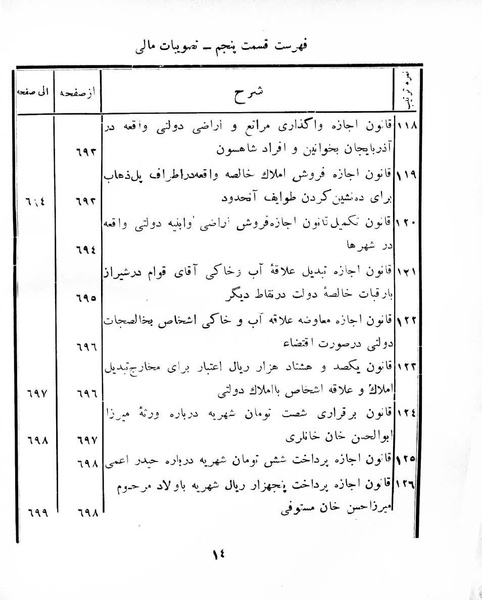 فهرست قسمت پنجم ــ تصویبات مالی
نمره ترتیب شرح از صفحه الی صفحه
۱۱۸ قانون اجازه واگذاری مراتع و اراضی دولتی واقعه در
آذربایجان بخوانین و افراد شاهسون ۶۹۳
۱۱۹ قانون اجازه فروش املاک خالصه واقعه در اطراف پل ذهاب
برای ده‌نشین کردن طوایف آنحدود ۶۹۳ ۶۹۴
۱۲۰ قانون تکمیل قانون اجازه فروش اراضی وابنیه دولتی واقعه
در شهرها ۶۹۴
۱۲۱ قانون اجازه تبدیل علاقهٔ آب و خاکی آقای قوام در شیراز
با رقبات خالصهٔ دولت در نقاط دیگر ۶۹۵
۱۲۲ قانون اجازه معاوضه علاقه آب و خاکی اشخاص بخالصجات
دولتی در صورت اقتضاء ۶۹۶
۱۲۳ قانون یکصد و هشتاد هزار ریال اعتبار برای مخارج تبدیل
املاک و علاقه اشخاص با املاک دولتی ۶۹۶ ۶۹۷
۱۲۴ قانون برقراری شصت تومان شهریه درباره ورثهٔ میرزا
ابوالحسن خان خانلری ۶۹۷ ۶۹۸
۱۲۵ قانون اجازه پرداخت شش تومان شهریه درباره حیدر اعمی ۶۹۸
۱۲۶ قانون اجازه پرداخت پنجهزار ریال شهریه باولاد مرحوم
میرزا حسن خان مستوفی ۶۹۸ ۶۹۹
۱٤